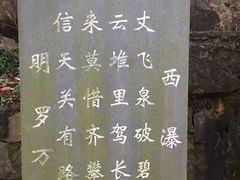 西瀑
丈飞泉破碧
云堆里驾长
来莫惜齐攀
信天关有路
明 罗万